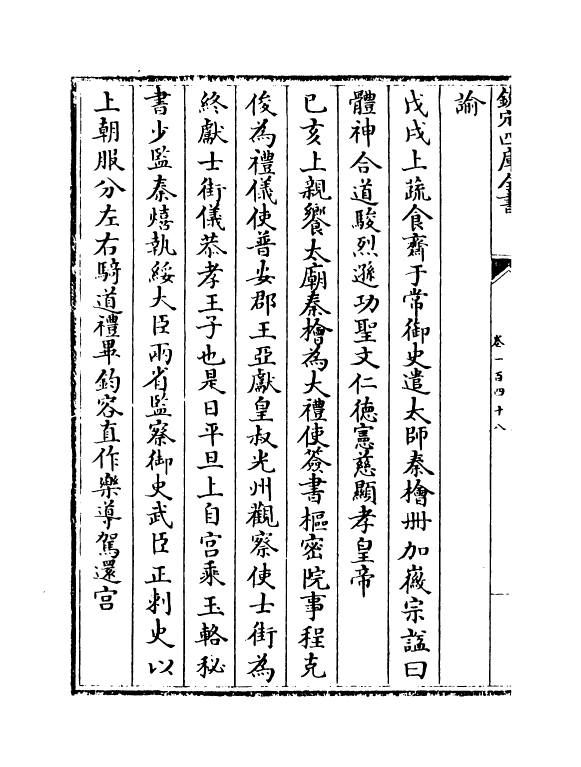 欽定四庫全書
卷一百四十八
諭
戊戌上疏食齋于常御史遣太師秦檜冊加徽宗諡曰
體神合道駿烈遜功聖文仁德憲慈顯孝皇帝
已亥上親饗太廟秦檜為大禮使簽書樞密院事程克
俊為禮儀使普安郡王亞獻皇叔光州觀察使士街為
終獻士街儀恭孝王子也是日平旦上自宫乘玉輅秘
書少監秦熺執綏大臣兩省監察御史武臣正刺史以
上朝服分左右騎道禮畢鈞容直作樂導駕還宫